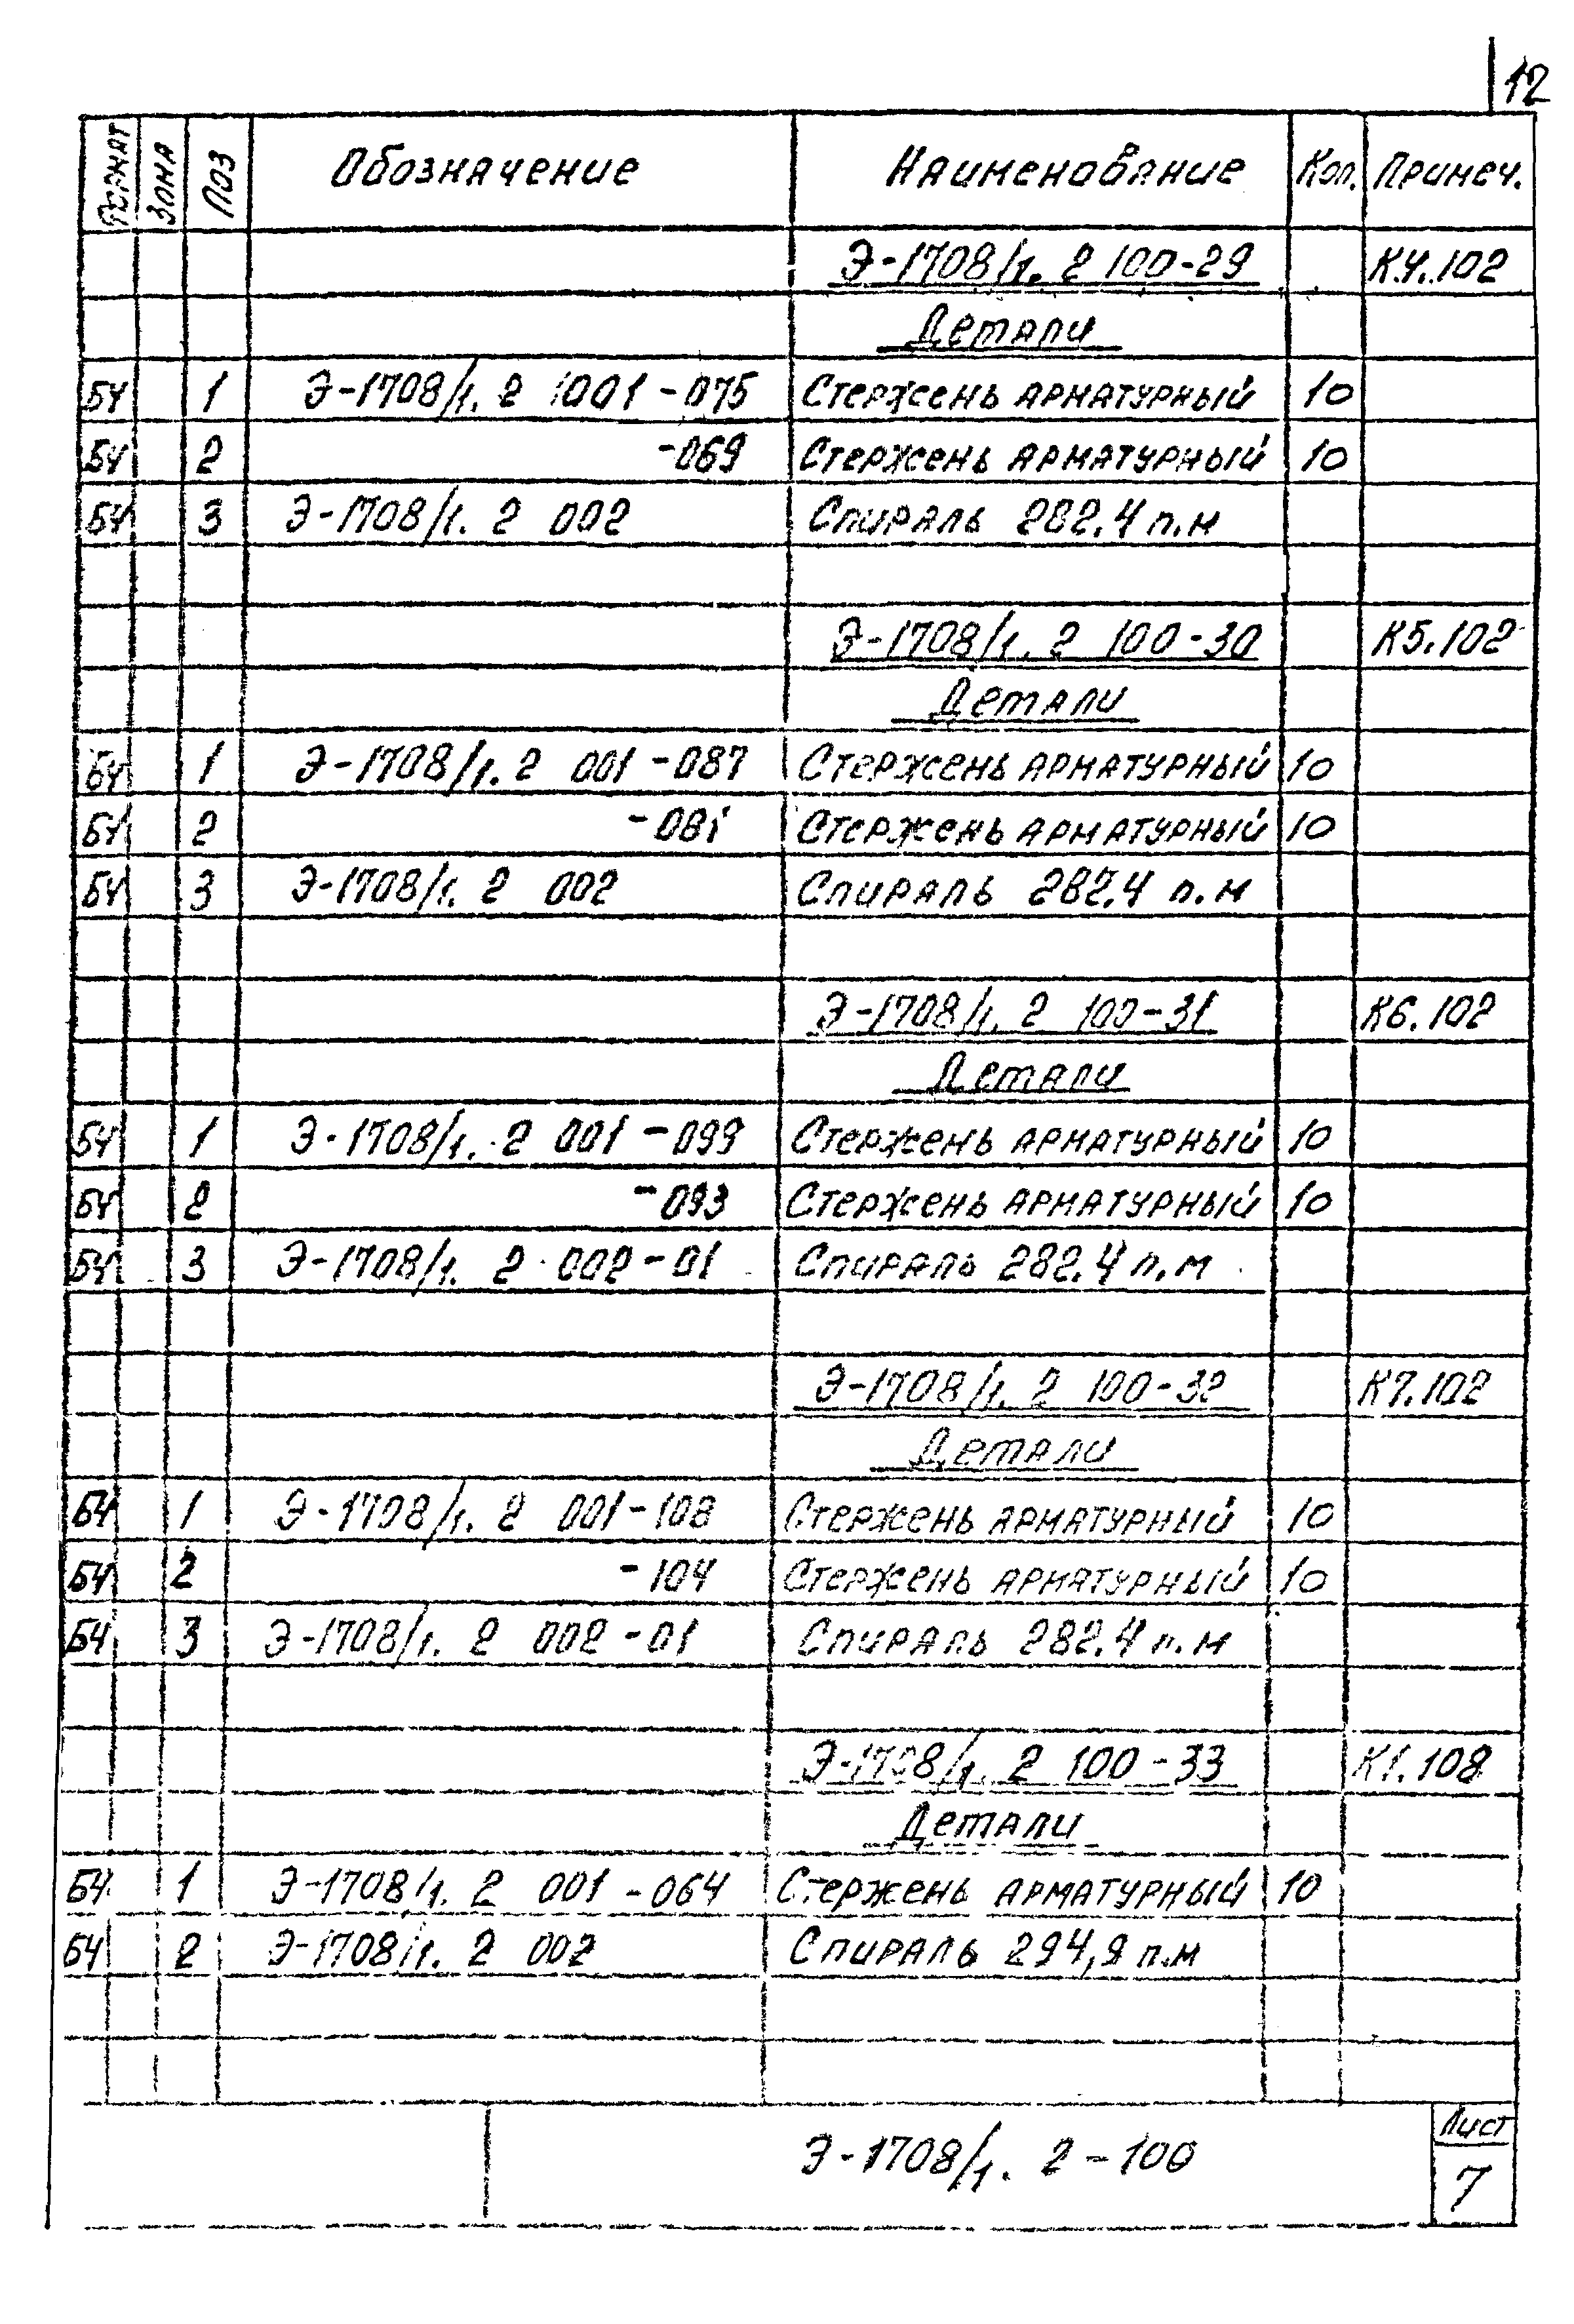 12
Формат Зона Поз Обозначение Наименование Кол. Примеч.
Э-1708/1. 2 100-29 К4.102
Детали
БЧ 1 Э-1708/1. 2 001-075 Стержень арматурный 10
БЧ 2 -069 Стержень арматурный 10
БЧ 3 Э-1708/1. 2 002 Спираль 282.4 п.м
Э-1708/1. 2 100-30 К5.102
Детали
БЧ 1 Э-1708/1. 2 001-087 Стержень арматурный 10
БЧ 2 -081 Стержень арматурный 10
БЧ 3 Э-1708/1. 2 002 Спираль 282.4 п.м
Э-1708/1. 2 100-31 К6.102
Детали
БЧ 1 Э-1708/1. 2 001-099 Стержень арматурный 10
БЧ 2 -093 Стержень арматурный 10
БЧ 3 Э-1708/1. 2 002-01 Спираль 282.4 п.м
Э-1708/1. 2 100-32 К7.102
Детали
БЧ 1 Э-1708/1. 2 001-108 Стержень арматурный 10
БЧ 2 -104 Стержень арматурный 10
БЧ 3 Э-1708/1. 2 002-01 Спираль 282.4 п.м
Э-1708/1. 2 100-33 К1.108
Детали
БЧ 1 Э-1708/1. 2 001-064 Стержень арматурный 10
БЧ 2 Э-1708/1. 2 002 Спираль 294,9 п.м
Э-1708/1. 2-100
Лист
7